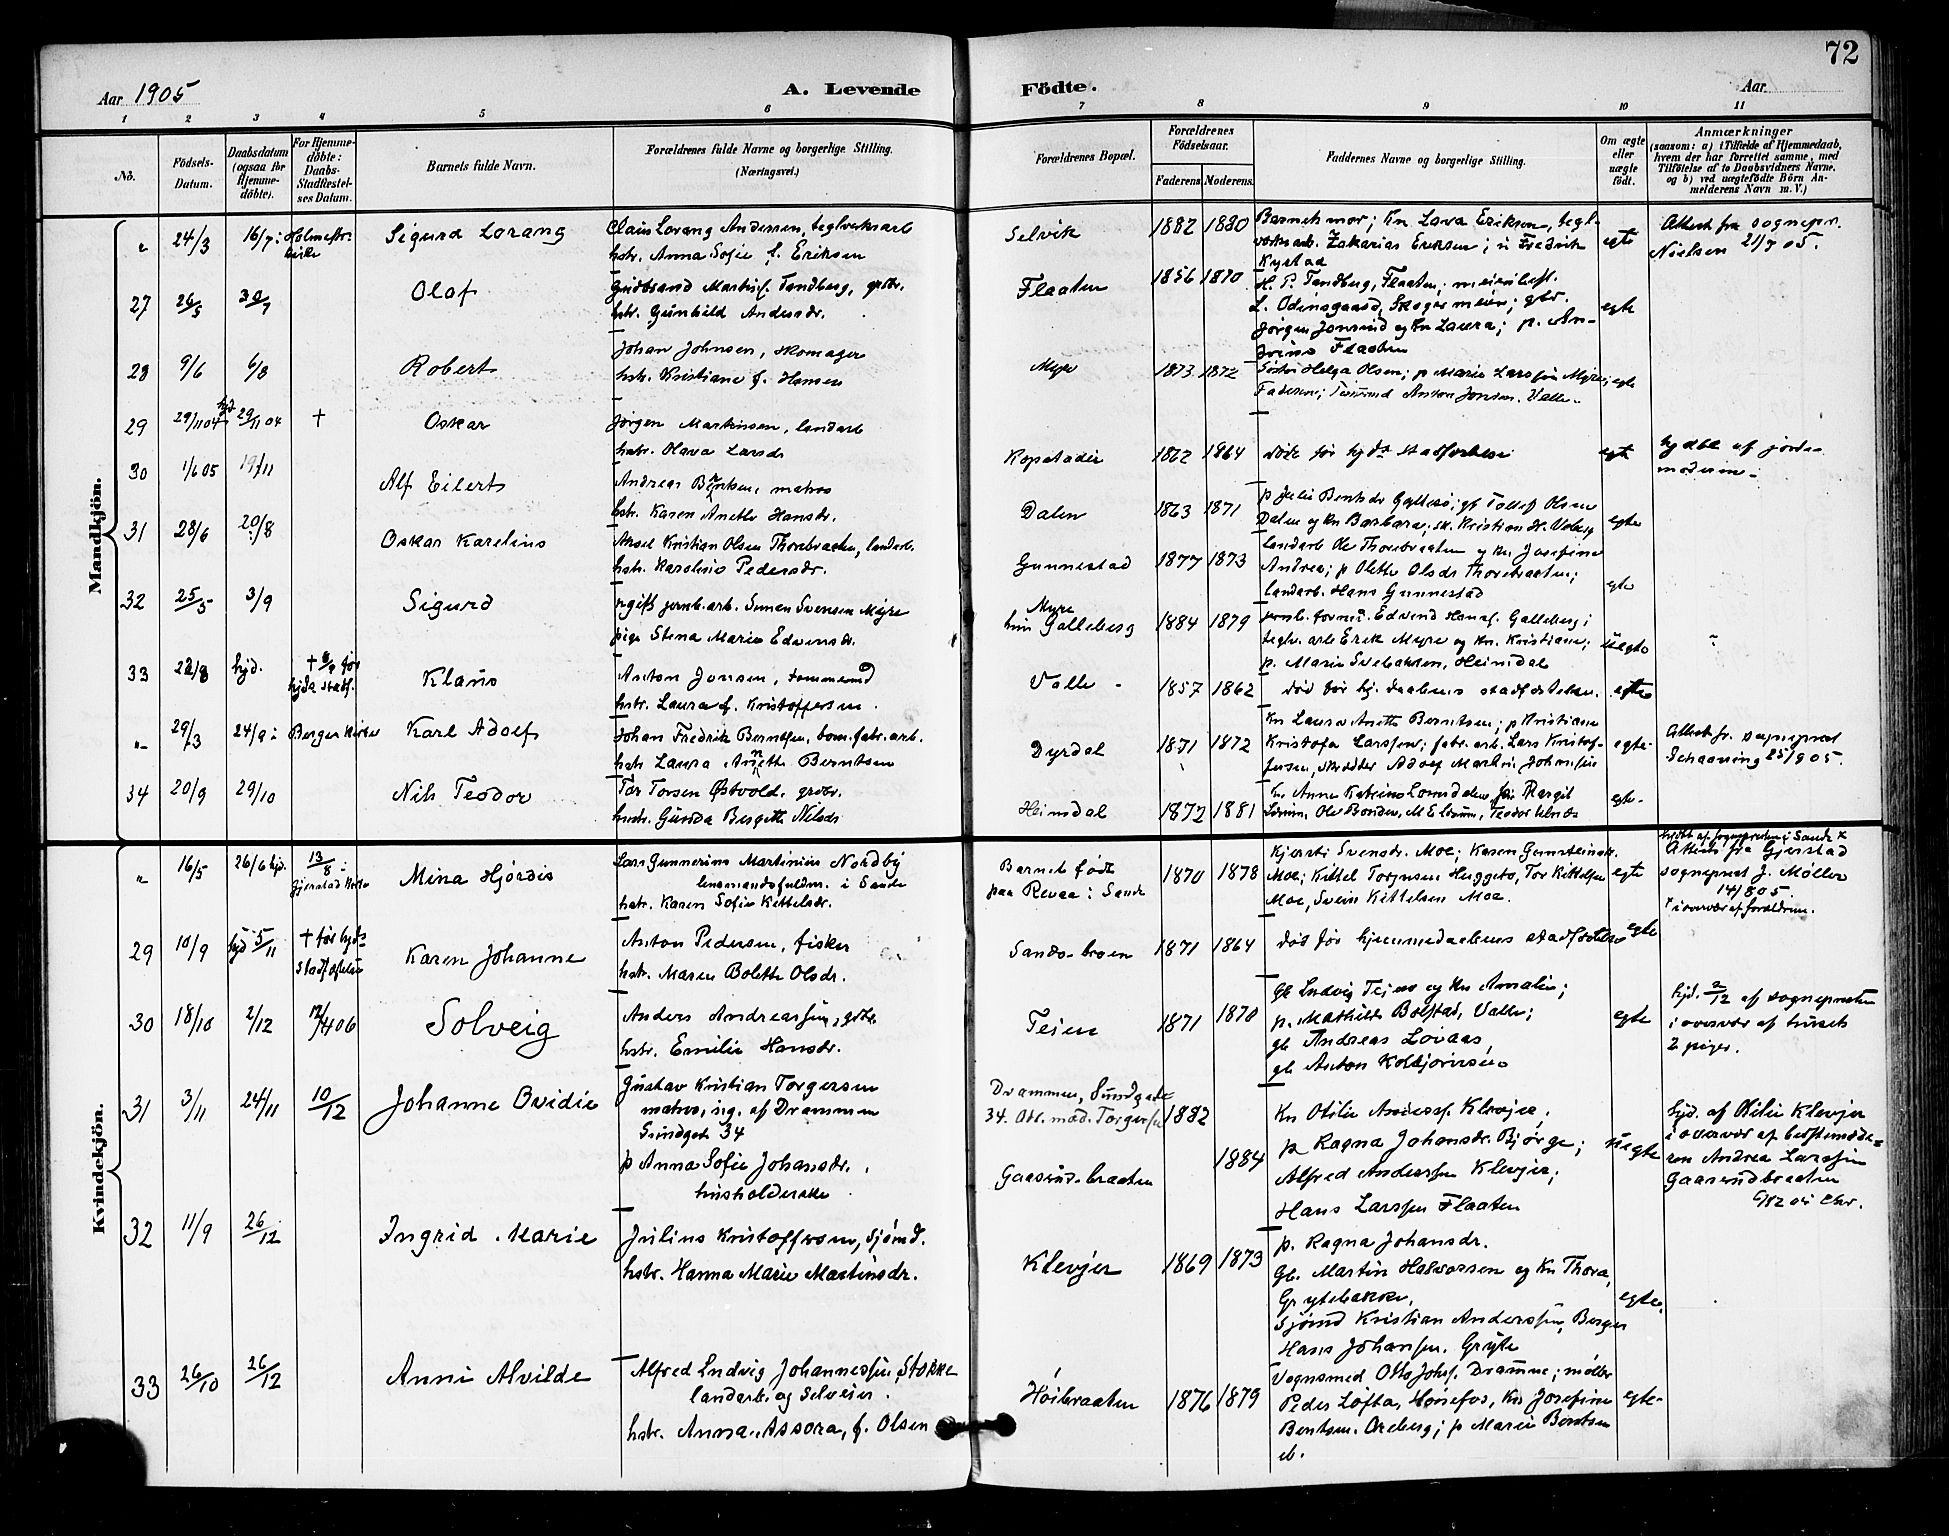 72
Aar 1905
A. Levende
Födte.
Aar
1 2 3 4 5 6 7 8 9 10 11
No.
Födsels-Datum.
Daabsdatum (ogsaa för Hjemmedöbte).
For Hjemmedöbte: Daabs-Stadfæstelses Datum.
Barnets fulde Navn.
Forældrenes fulde Navne og borgerlige Stilling.
(Næringsvei.)
Forældrenes Bopæl.
Forældrenes Födselsaar.
Faderens. Moderens.
Faddernes Navne og borgerlige Stilling.
Om ægte eller uægte födt.
Anmærkninger
(saasom: a) i Tilfælde af Hjemmedaab, hvem der har forrettet samme, med Tilföielse af to Daabsvidners Navne, og b) ved uægtefödte Börn Anmelderens Navn m. V.)
Mandkjön.
" 24/3 16/7 : Holmestr. kirke Sigurd Lorang Claus Lorang Andersen, teglverksarb
hstr. Anna Sofie f. Eriksen
Selvik 1882 1880 Barnets mor; kn Lava Eriksen, tegl-
verksarb. Zakarias Eriksen; u Fredrik
Kystad
egte Attest fra sognepr.
Nielsen 21/7 05.
27 26/5 30/7 Olaf Gudbrand Martins. Tandberg, grbr.
hstr. Gunhild Andersdr.
Flaaten 1856 1870 H. P. Tandberg, Flaaten; meieribest.
L. Odinsgaard, Skoger meieri; gbr.
Jørgen Jonsrud og kn Laura; p. An-
Flaaten
egte
28 9/6 6/8 Robert Johan Johnsen, skomager
hstr. Kristiane f. Hansen
Myre 1873 1872 Helga Olsen; p Marie Larssen Myre;
Faderen; Tømmermd Anton Jonsen, Valle.
egte
29 29/11 04 hjd. 29/11 04 † Oskar Jørgen Martinsen, landarb
hstr. Olava Larsdr
Kopstadie 1862 1864 døde før hjd. stadfæstelse egte hjdbt af jorde-
moderen.
30 1/6 05 19/11 Alf Eilert Andreas Berntsen, matros
hstr. Karen Anette Hansdr.
Dalen 1863 1871 p Julie Bentsdr Gyltesø; gf Tollef Olsen
Dalen og kn Barbara; sk. Kristian H. Veberg
egte
31 28/6 20/8 Oskar Karelius Aksel Kristian Olsen Thorebraaten, landarb.
hstr. Karoline Pedersdr.
Gunnestad 1877 1873 landarb Ole Thorebraaten og kn Josefine
Andrea; p Olette Olsdr Thorebraaten;
landarb. Hans Gunnestad
egte
32 25/5 3/9 Sigurd ugift jernb.arb. Simen Svensen Myre
pige Stena Marie Edvinsdr.
Myre
hun Galleberg 1884 1879 jernb. formd. Edvind Hansf. Galleberg;
teglv. arb Erik Myre og kn. Kristiane;
p. Marie Svebakken, Heimdal
uegte "
33 22/8 hjd. † før hjds stadf. Klaus Anton Jonsen, tømmermd
hstr. Laura f. Kristoffersen.
Valle 1857 1862 død før hj. daabens stadfæstelse. egte
" 29/3 24/9 : Berger Kirke Karl Adolf Johan Fredrik Berntsen, bom. fabr. arb.
hstr Laura Anette Berntsen
Dyrdal 1871 1872 kn Laura Anette Berntsen; p Kristiane
Kristofa Larssen; fabr. arb. Lars Kristof-
fersen, skrædder Adolf Martin Johnsen
egte Attest fr. sognepræst
Schaaning 25/9 05.
34 20/9 29/10 Nils Teodor Tor Torsen Østvold, grbr.
hstr. Gunda Birgitte Nilsdr
Heimdal 1872 1881 kn Anne Katrine Lomsdalen, Margit
Ole Bonden, M Teodor
egte
Kvindekjön.
" 16/5 26/6 hjd. 13/8 : Gjerstad Kirke Mina Hjørdis Lars Gunnerius Martinius Nordby
lensmandsfuldm. i Sande
hstr. Karen Sofie Kittelsdr.
Barnet født
paa Revaa i Sande 1870 1878 Kjersti Svensdr. Moe; Karen Gunsteinsdr.
Moe; Kittel Torjusen Heggeto, Tor Kittelsen
Moe, Svein Kittelsen Moe.
egte hjdbt af sognepresten i Sande x
Attest fra Gjerstad
sognepræst J. Møller
14/8 05.
x i overvær af forældrene.
29 10/9 hjd 5/11 † før hjds stadfæstelse Karen Johanne Anton Pedersen, fisker
hstr. Maren Bolette Olsdr.
Sandebroen 1871 1864 død før hjemmedaabens stadfæstelse egte
30 18/10 2/12 12/4 06 Solveig Anders Andreassen, grbr.
hstr. Emilie Hansdr.
Teien 1871 1870 gb Ludvig Teien og kn Amalie;
p. Mathilde Bolstad, Valle;
gb Andreas Lovaas,
gb Anton Kolbjørnsen
egte hjd. 2/12 af sognepresten
i overvær af husets
2 piger.
31 3/11 24/11 10/12 Johanne Ovidie Gustav Kristian Torgersen
matros, ug. af Drammen
Sundgt. 34
p Anna Sofie Johansdr.,
husholderske
Drammen, Sundgade
34. Torgersen 1882
Gaasrudbraaten 1884
kn Otilie Anderss. Klevjer,
p Ragna Johansdr. Bjørge;
Alfred Anderssen Klevjer;
Hans Larssen Flaaten
uegte hjd. af Otilie Klevjer
i overvær af bestemode-
ren Andrea Larssen
Gaasrudbraaten
32 11/9 26/12 Ingrid Marie Julius Kristoffersen, sjømd.
hstr. Hanna Marie Martinsdr.
Klevjer 1869 1873 p. Ragna Johansdr.
Gb. Martin Halvorsen og kn Thora,
Grytebakke,
Sjømd Kristian Anderssen, Berger
Hans Johansen, Gryte
egte
33 26/10 26/12 Anni Alvilde Alfred Ludvig Johannessen Stokke
landarb. og selveier.
hstr. Anna Assora, f. Olsen
Høibraaten 1876 1879 Vognsmed Otto Johs. Dramme; møller
Peder Løfta, Hønefos, kn Josefine
Berntsen, Areberg; p Marie Berntsen
ib.
egte